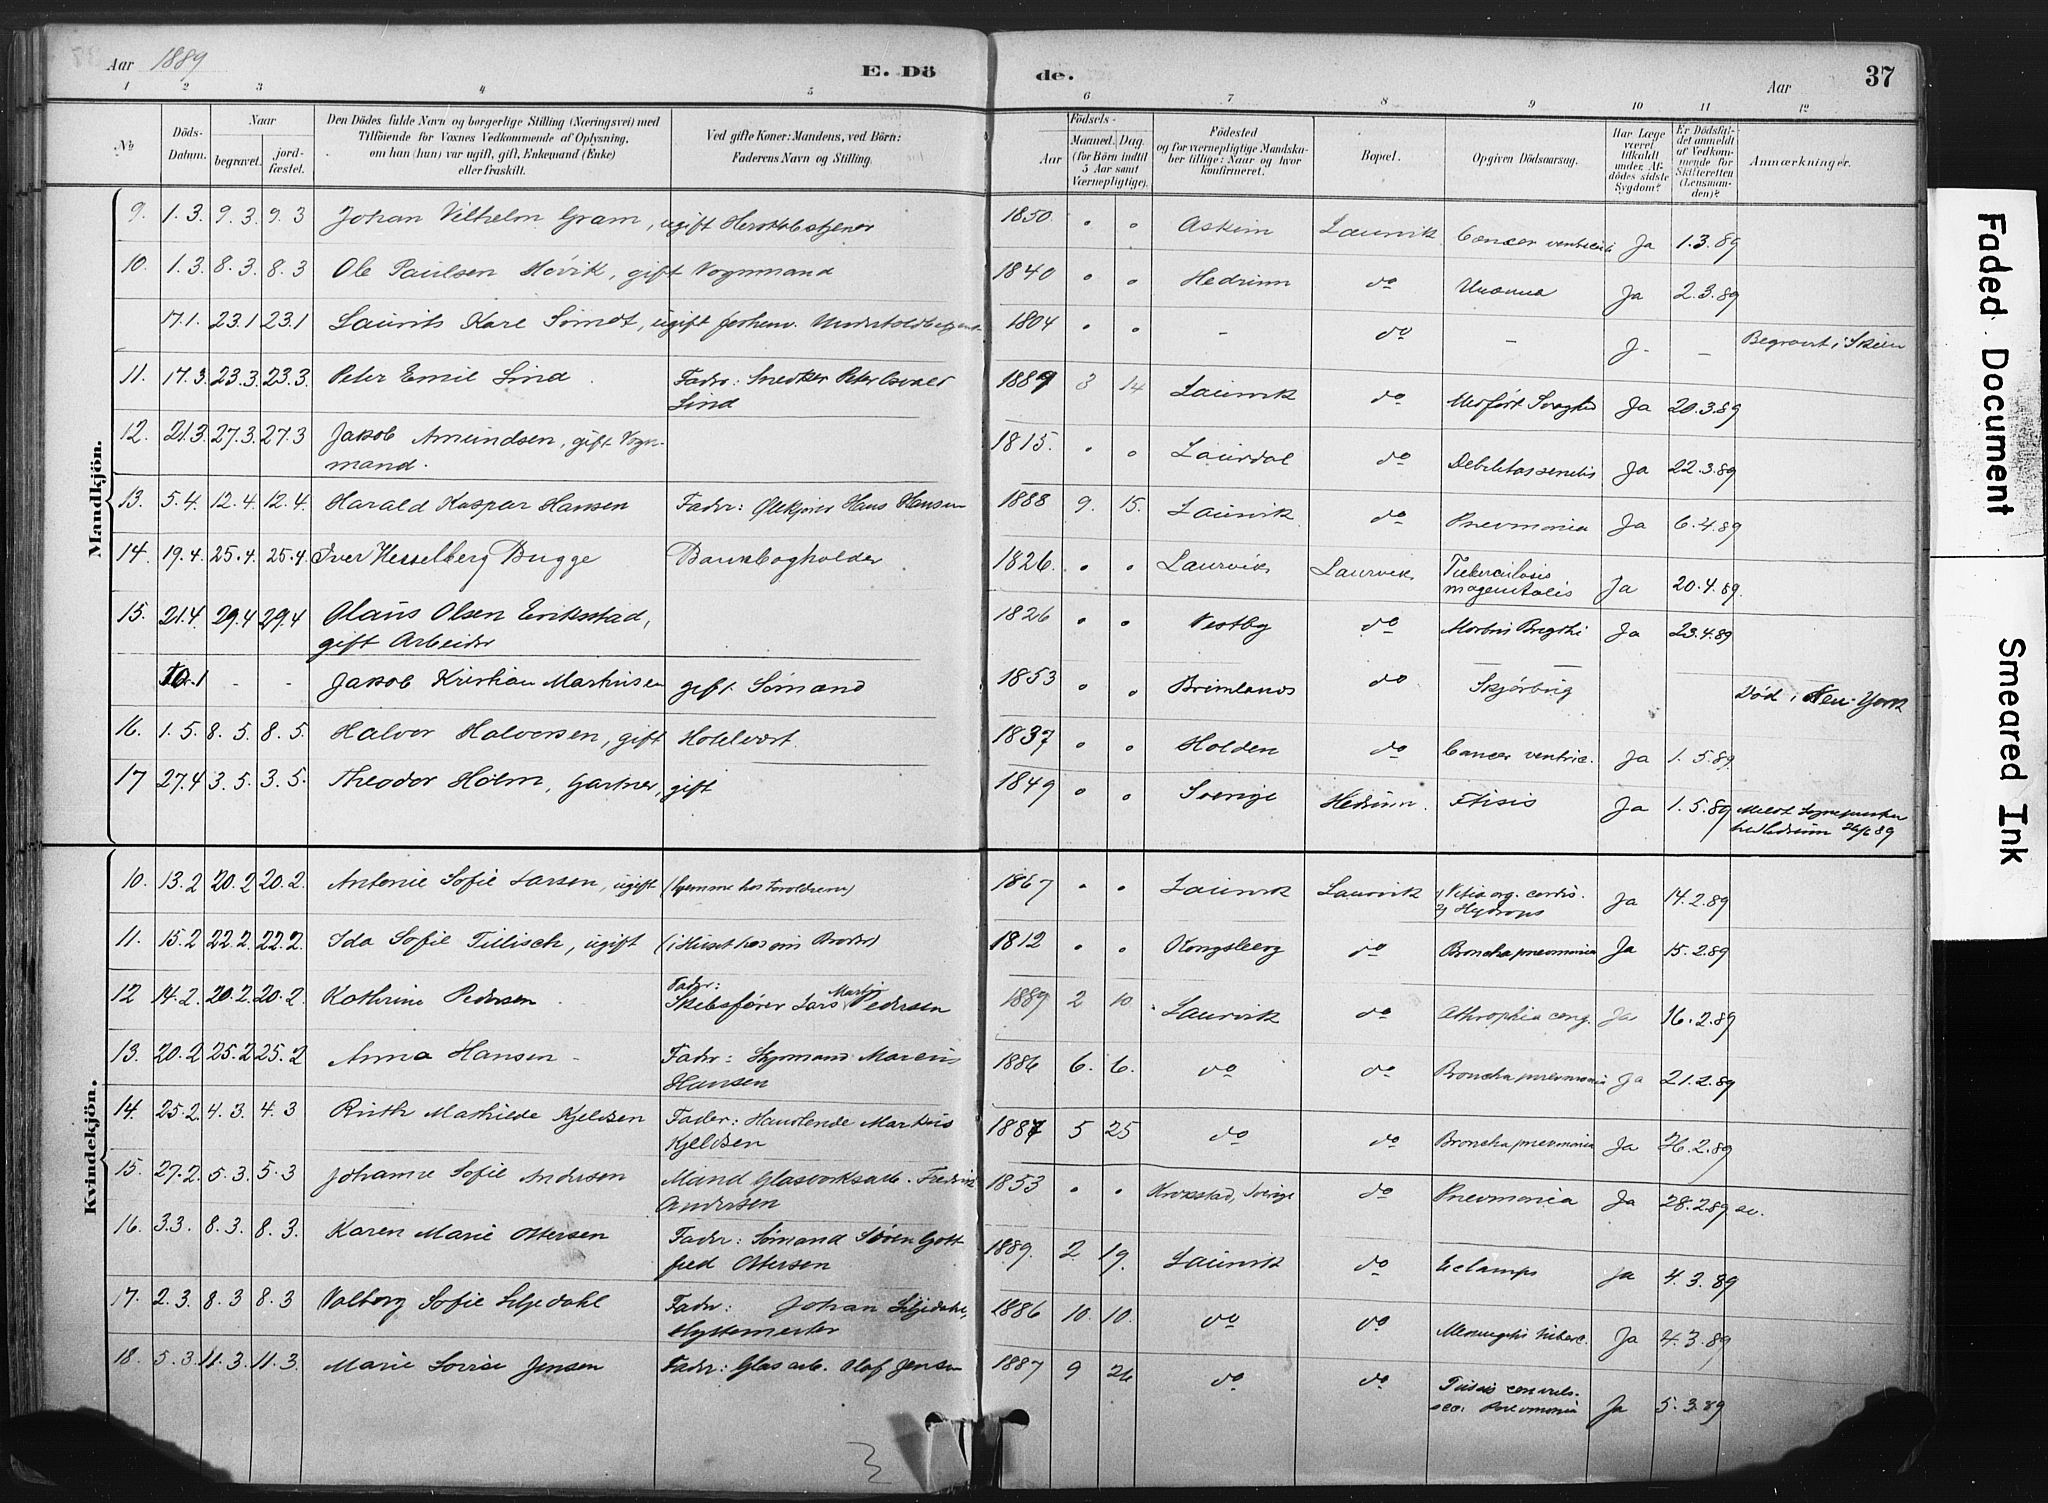 Aar 1889 E. Dö de. Aar 37
1 2 3 4 5 6 7 8 9 10 11 12
№ Döds-Datum. Naar begravet. jord-fæstet. Den Dödes fulde Navn og borgerlige Stilling (Næringsvei) med Tilföiende for Voxnes Vedkommende af Oplysning, om han (hun) var ugift, gift, Enkemand (Enke) eller fraskilt. Ved gifte Koner: Mandens, ved Börn: Faderens Navn og Stilling. Födsels- Aar Maaned. Dag. (for Börn indtil 5 Aar samt Værnepligtige). Födested og for værnepligtige Mandskaber tillige: Naar og hvor konfirmeret. Bopæl. Opgiven Dödsaarsag. Har Læge været tilkaldt under Afdödes sidste Sygdom? Er Dödsfaldet anmeldt af Vedkommende for Skifteretten (Lensmanden)? Anmærkninger.
Mandkjön.
9. 1.3. 9.3. 9.3 Johan Vilhelm Gram, ugift 1850. " " Askim Laurvik Cancer ventriculi Ja 1.3.89
10. 1.3. 8.3. 8.3 Ole Paulsen Hövik, gift Vognmand 1840 " " Hedrum do Ja 2.3.89
17.1. 23.1 23.1 Laurits Kare ugift 1804 " " - do - J. - Begravet i Skien
11. 17.3. 23.3. 23.3. Peter Emil Lind. Fader: Snedker Peter Lind 1889 3 14 Laurvik do Medfödt Svaghed Ja 20.3.89
12. 21.3. 27.3. 27.3 Jakob Amundsen, gift Vogn-
mand. 1815. " " Laurdal do Debilitas senilis Ja 22.3.89
13. 5.4. 12.4. 12.4. Harald Kaspar Hansen Fader: Ølekjører Hans Hansen 1888 9. 15. Laurvik do Pnevmonia Ja 6.4.89
14. 19.4. 25.4. 25.4. Iver Hesselberg Bugge Bankbogholder 1826. " " Laurvik Laurvik Tuberculosis Ja 20.4.89.
15. 21.4. 29.4 29.4 Olaus Olsen Eriksstad,
gift Arbeider 1826 " " Vestby do Morbus Brigthi Ja 23.4.89
10.1 - - Jakob Kristian Martinsen gift Sömand 1853 " " Brunlanes do Skjörbug Död i New-York
16. 1.5. 8.5. 8.5. Halvor Halvorsen, gift Hotelvært. 1837 " " Holden do Cancer ventric. Ja 1.5.89.
17 27.4 3.5. 3.5. Theodor Holm, Gartner, gift 1849 " " Sverige Hedrum. Ftisis Ja 1.5.89 Meldt Sognepresten Hedrum 89
Kvindekjön.
10. 13.2 20.2 20.2. Antonie Sofie Larsen, ugift (hjemme hos Forældrene) 1867 " " Laurvik Laurvik 1) Vitia org. cordis. 2) Hydrops Ja 14.2.89
11. 15.2 22.2. 22.2. Ida Sofie Tillisch, ugift (i Huset hos sin Broder) 1812 " " Kongsberg do Bronchopnevmonia Ja 15.2.89
12 14.2. 20.2. 20.2. Kathrine Pedersen. Fader: Skibsförer Lars Martin Pedersen 1889 2 10 Laurvik do Athrophia cong. Ja 16.2.89
13. 20.2 25.2 25.2 Anna Hansen - Fader: Marcus
Hansen 1886 6. 6. do do Bronchopnevmonia Ja 21.2.89
14. 25.2. 4.3. 4.3 Ruth Mathilde Kjeldsen Fader: Handlende Markus
Kjeldsen 1887 5 25 do do Bronchopnevmonia Ja 26.2.89
15. 27.2. 5.3. 5.3 Johanne Sofie Andersen Mand Glasværksarb. Fredrik
Andersen 1853 " " Krokstad, Sverige do Pnevmonia Ja 28.2.89
16. 3.3. 8.3. 8.3. Karen Marie Ottersen Fader: Sömand Sören Gott
fred Ottersen 1889. 2. 19. Laurvik do Eclamps Ja 4.3.89
17. 2.3. 8.3 8.3 Valborg Sofie Liljedahl Fader: Johan Liljedahl,
Hyttemester 1886 10. 10. do do Ja 4.3.89
18. 5.3. 11.3. 11.3. Marie Lovise Jensen Fader: Glasarb. Olaf Jensen 1887 9 26 do do Pnevmonia Ja 5.3.89
Faded Document
Smeared Ink